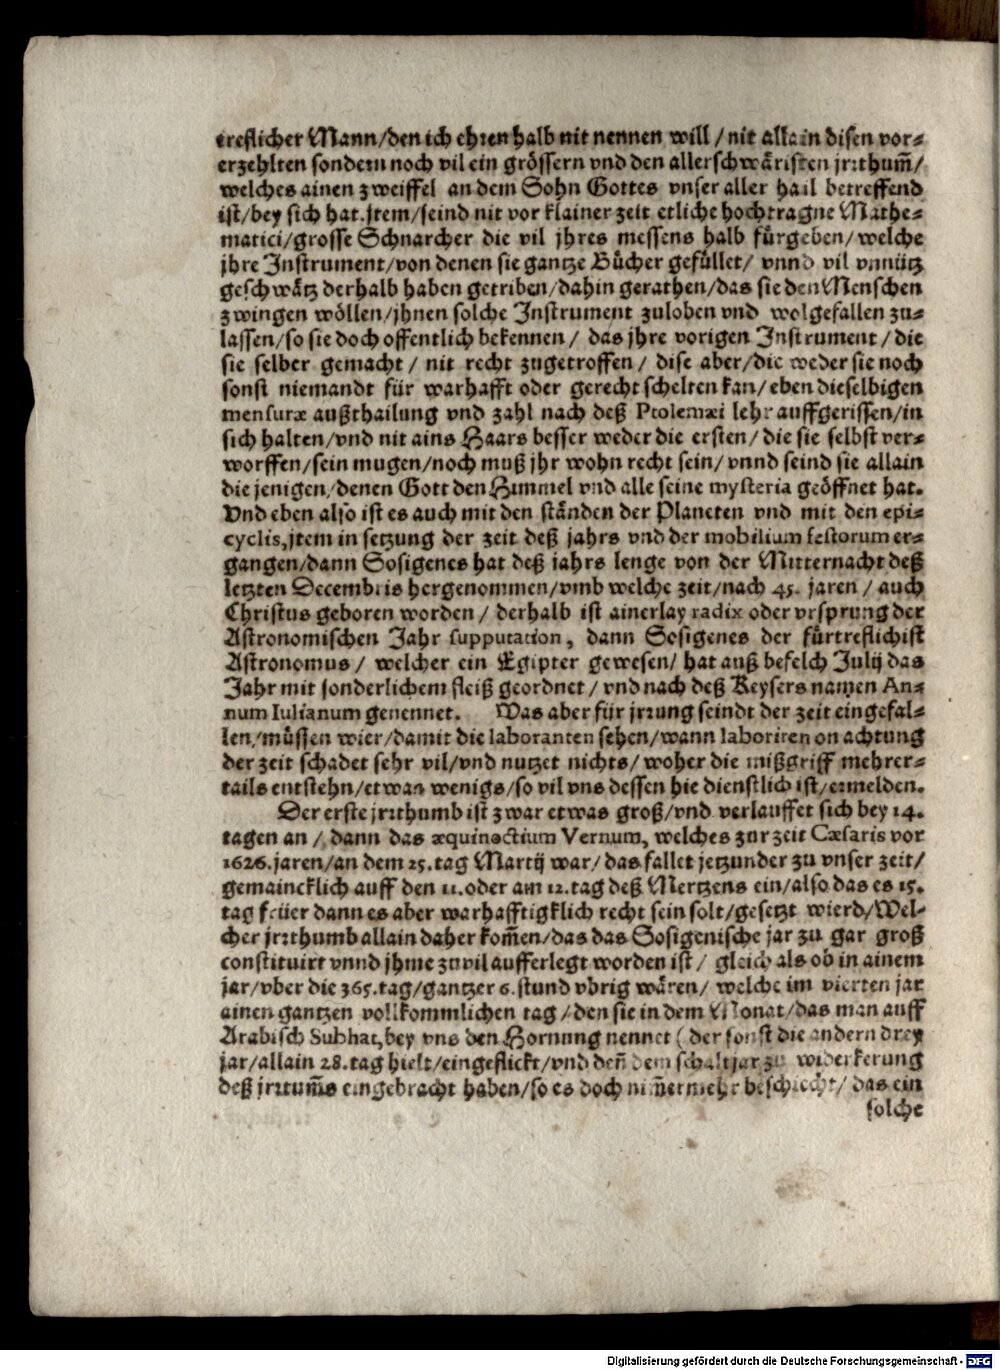 treflicher Mann/den ich ehren halb nit nennen will / nit allain disen vor-
erzehlten sondern noch vil ein grössern vnd den allerschwäristen jrrthum̃/
welches ainen zweiffel an dem Sohn Gottes vnser aller hail betreffend
ist/bey sich hat.jtem/seind nit vor klainer zeit etliche hochtragne Mathe-
matici/grosse Schnarcher die vil jhres messens halb fürgeben/welche
jhre Instrument/von denen sie gantze Bücher gefüllet/ vnnd vil vnnütz
geschwätz derhalb haben getriben/dahin gerathen/das sie den Menschen
zwingen wöllen/jhnen solche Instrument zuloben vnd wolgefallen zu-
lassen/so sie doch offentlich bekennen / das jhre vorigen Instrument / die
sie selber gemacht / nit recht zugetroffen / dise aber/die weder sie noch
sonst niemandt für warhafft oder gerecht schelten kan/eben dieselbigen
mensuræ außthailung vnd zahl nach deß Ptolemæi lehr auffgerissen/in
sich halten/vnd nit ains Haars besser weder die ersten / die sie selbst ver-
worffen/sein mugen/noch muß jhr wohn recht sein/ vnnd seind sie allain
die jenigen/denen Gott den Himmel vnd alle seine mysteria geöffnet hat.
Vnd eben also ist es auch mit den ständen der Planeten vnd mit den epi-
cyclis,jtem in setzung der zeit deß jahrs vnd der mobilium festorum er-
gangen/dann Sosigenes hat deß jahrs lenge von der Mitternacht deß
letzten Decembris hergenommen/vmb welche zeit/nach 45. jaren / auch
Christus geboren worden / derhalb ist ainerlay radix oder vrsprung der
Astronomischen Jahr supputation, dann Sosigenes der fürtreflichist
Astronomus / welcher ein Egipter gewesen/ hat auß befelch Julij das
Jahr mit sonderlichem fleiß geordnet / vnd nach deß Keysers namen An-
num Iulianum genennet. Was aber für jrrung seindt der zeit eingefal-
len/müssen wier/damit die laboranten sehen/wann laboriren on achtung
der zeit schadet sehr vil/vnd nutzet nichts/ woher die mißgriff mehrer-
tails entstehn/etwas wenigs/so vil vns dessen hie dienstlich ist/ermelden.
Der erste jrrthumb ist zwar etwas groß/vnd verlauffet sich bey 14.
tagen an / dann das æquinoctium Vernum, welches zur zeit Cæsaris vor
1626.jaren/an dem 25.tag Martij war/das fallet jetzunder zu vnser zeit/
gemaincklich auff den 11.oder am 12.tag deß Mertzens ein/also das es 15.
tag früer dann es aber warhafftigklich recht sein solt/gesetzt wierd/Wel-
cher jrrthumb allain daher kom̃en/das das Sosigenische jar zu gar groß
constituirt vnnd jhme zuvil aufferlegt worden ist / gleich als ob in ainem
jar/vber die 365.tag/gantzer 6.stund vbrig wären/ welche im vierten jar
ainen gantzen vollkommlichen tag / den sie in dem Monat/das man auff
Arabisch Subhat,bey vns den Hornung nennet ( der sonst die andern drey
jar/allain 28.tag hielt/eingeflickt/vnd den̄ dem schaltjar zu widerkerung
deß jrrtum̃s eingebracht haben/so es doch nim̃ermehr beschiecht/ das ein
solche
Digitalisierung gefördert durch die Deutsche Forschungsgemeinschaft - DFG